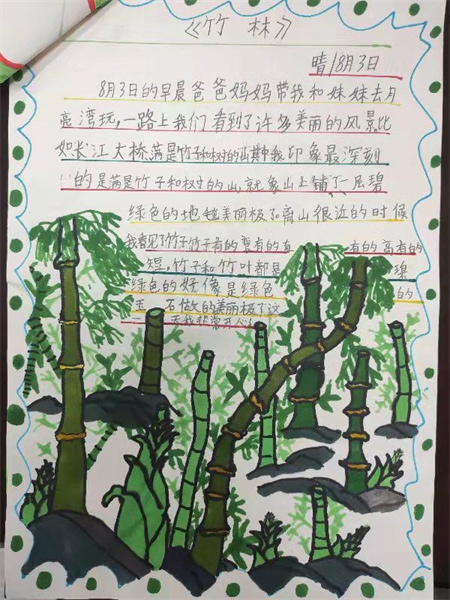 《竹林》
晴 8月3日
8月3日的早晨爸爸妈妈带我和妹妹去月
亮湾玩,一路上我们看到了许多美丽的风景比
如长江大桥满是竹子和树的山其中我印象最深刻
的是满是竹子和树的山,就象山上铺了一层碧
绿色的地毯美丽极了离山很近的时候
我看见了竹子竹子有的弯有的直 有的高有的
短,竹子和竹叶都是 绿
绿色的好像是绿色 的
玉石做的美丽极了这
天我非常开心